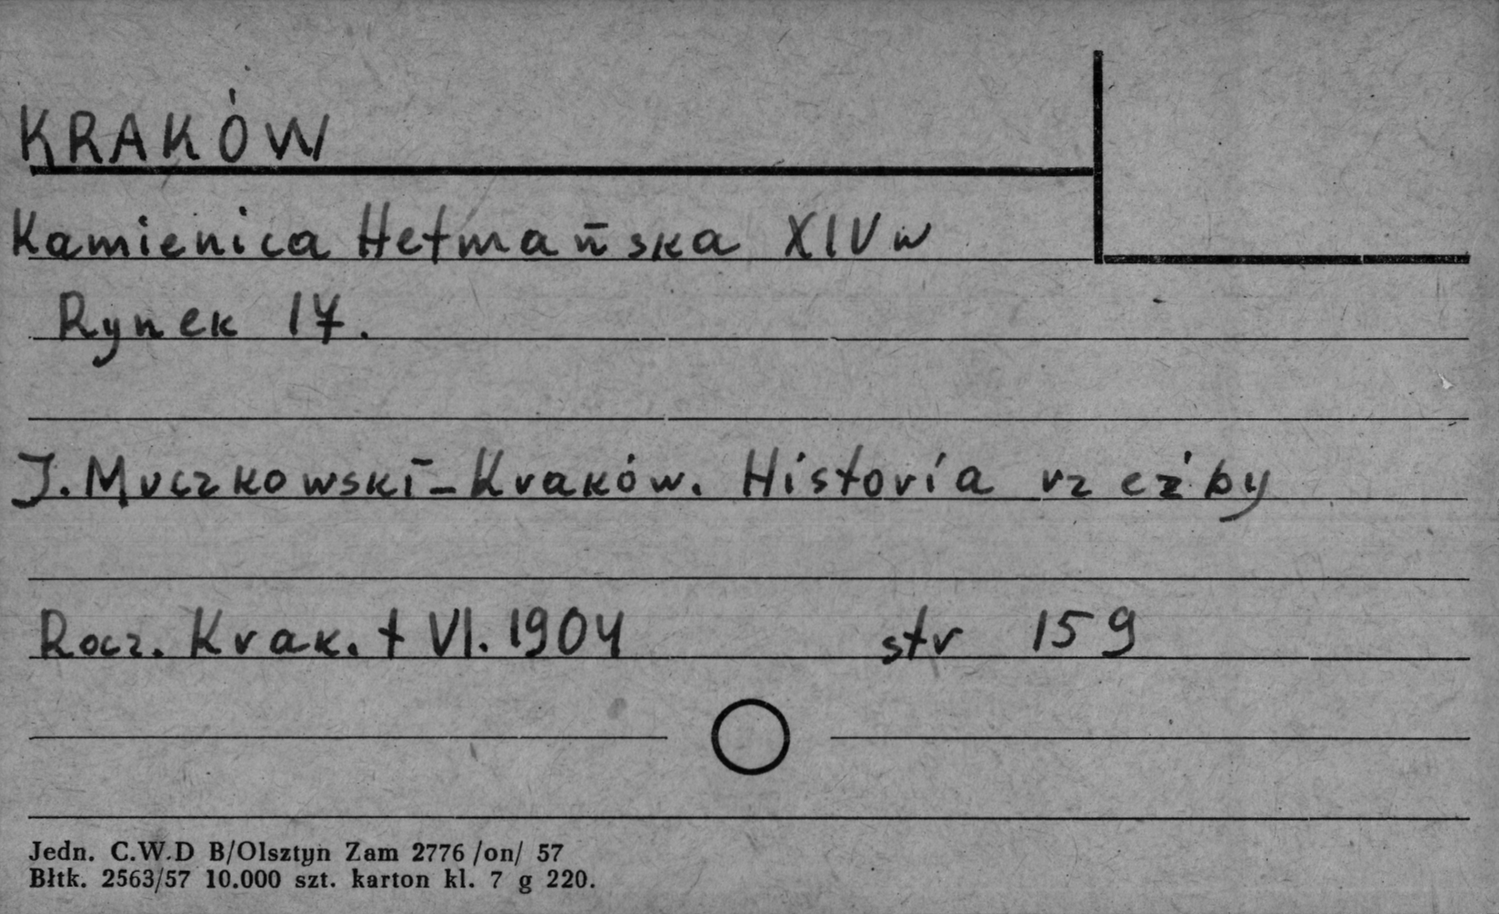 KRAKÓW
Kamienica Hetmańska XIV w
Rynek 17.
J. Muczkowski - Kraków. Historia rzeźby
Rocz. Krak. t VI. 1904 str 159
Jedn. C.W.D B/Olsztyn Zam 2776 /on/ 57
Błtk. 2563/57 10.000 szt. karton kl. 7 g 220.